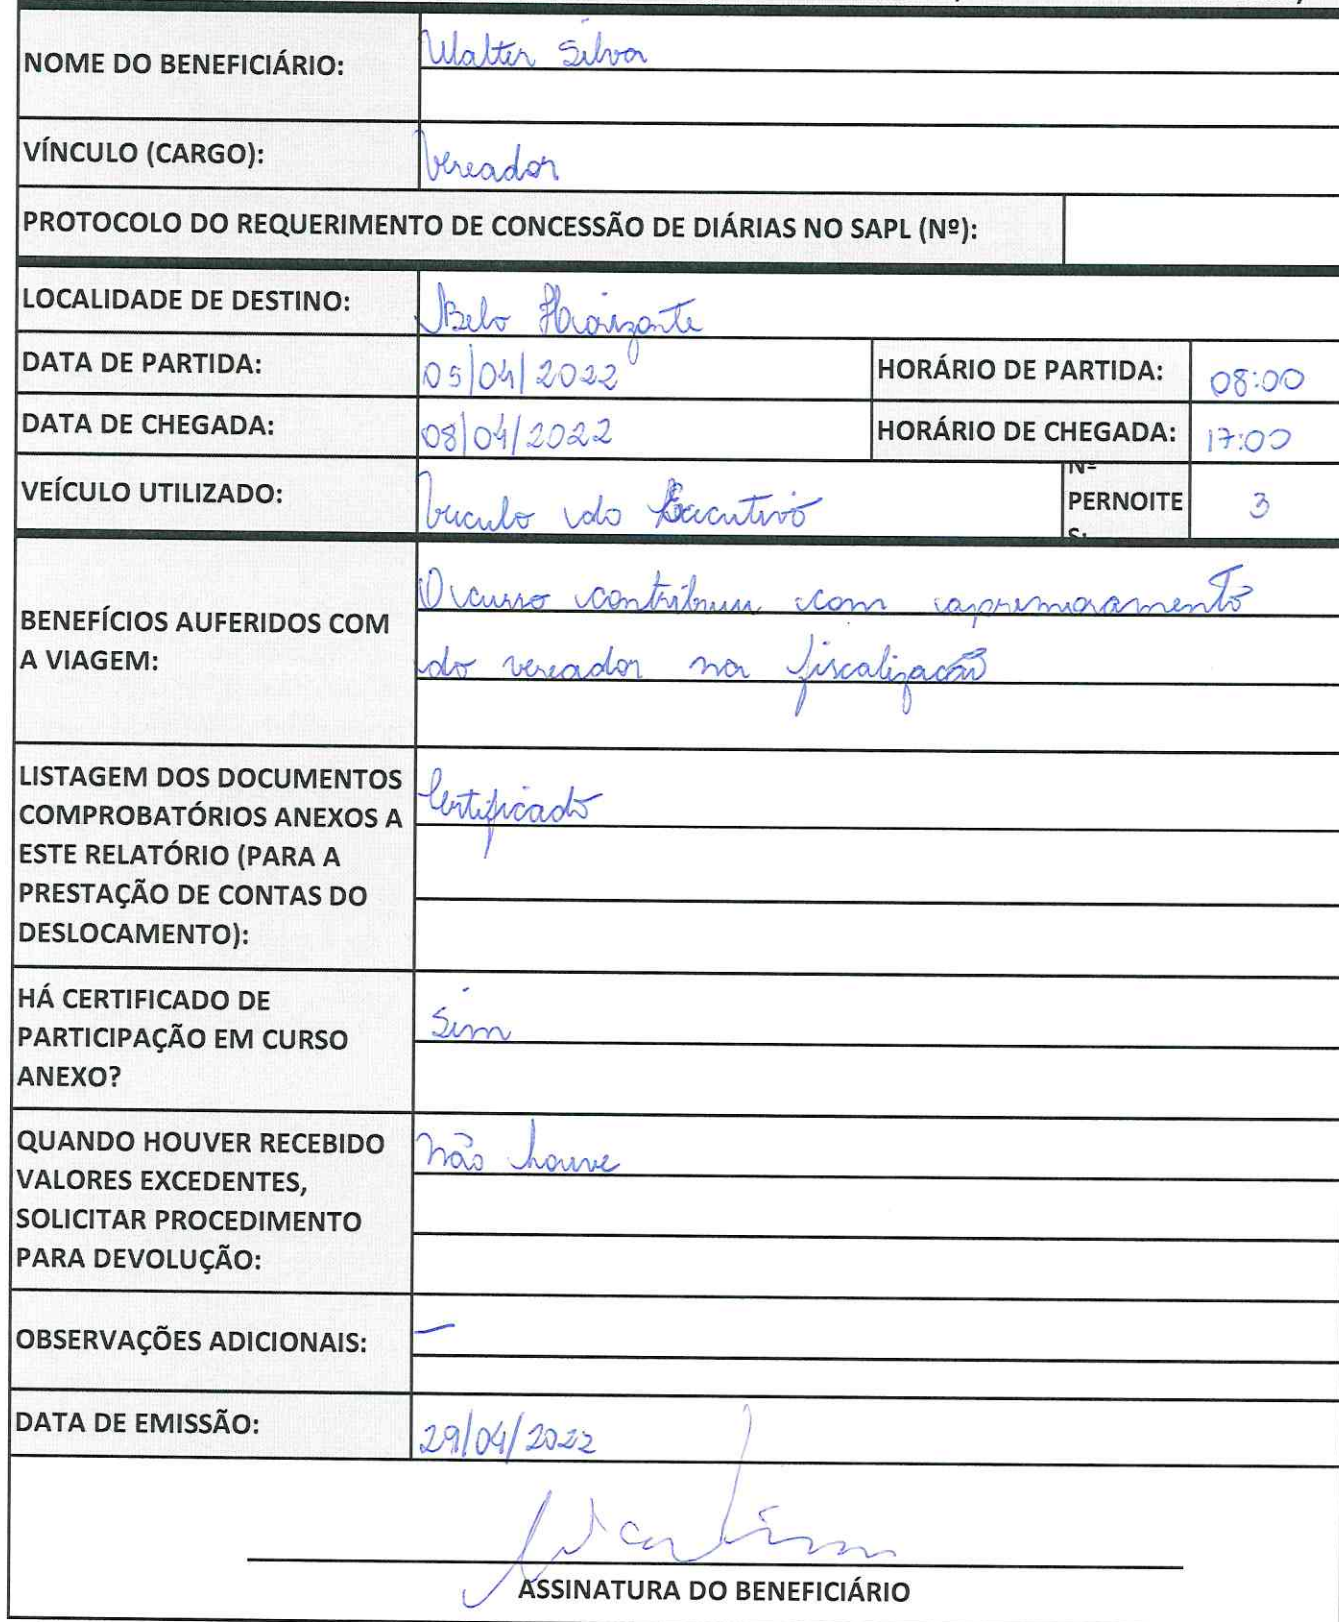 NOME DO BENEFICIÁRIO: Walter Silva
VÍNCULO (CARGO): Vereador
PROTOCOLO DO REQUERIMENTO DE CONCESSÃO DE DIÁRIAS NO SAPL (Nº):
LOCALIDADE DE DESTINO: Belo Horizonte
DATA DE PARTIDA: 05/04/2022 HORÁRIO DE PARTIDA: 08:00
DATA DE CHEGADA: 08/04/2022 HORÁRIO DE CHEGADA: 17:00
VEÍCULO UTILIZADO: Veiculo do Executivo Nº PERNOITES: 3
BENEFÍCIOS AUFERIDOS COM
A VIAGEM:
O curso contribuiu com aprimoramento
do vereador na fiscalização
LISTAGEM DOS DOCUMENTOS
COMPROBATÓRIOS ANEXOS A
ESTE RELATÓRIO (PARA A
PRESTAÇÃO DE CONTAS DO
DESLOCAMENTO):
Certificado
HÁ CERTIFICADO DE
PARTICIPAÇÃO EM CURSO
ANEXO?
Sim
QUANDO HOUVER RECEBIDO
VALORES EXCEDENTES,
SOLICITAR PROCEDIMENTO
PARA DEVOLUÇÃO:
Não houve
OBSERVAÇÕES ADICIONAIS: —
DATA DE EMISSÃO: 29/04/2022
ASSINATURA DO BENEFICIÁRIO